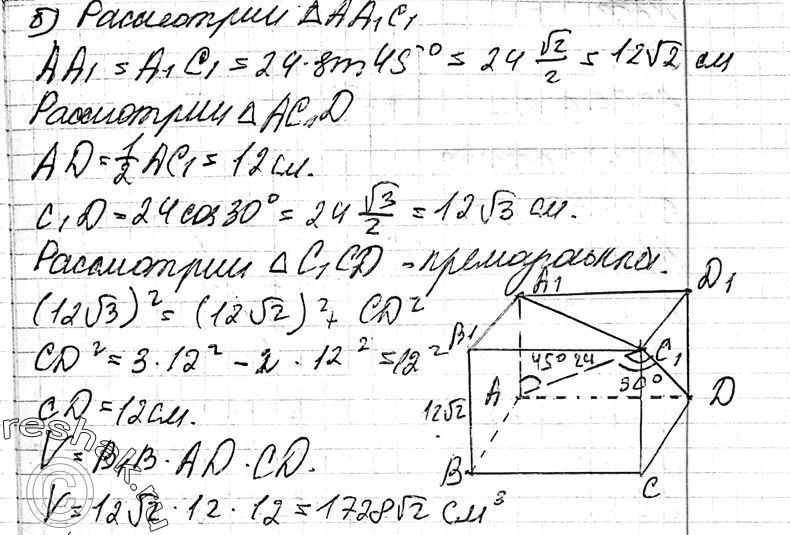 б) Рассмотрим △AA₁C₁
AA₁ = A₁C₁ = 24·sin45° = 24 √2/2 = 12√2 см
Рассмотрим △AC₁D
AD = 1/2 AC₁ = 12 см.
C₁D = 24 cos 30° = 24 √3/2 = 12√3 см.
Рассмотрим △C₁CD - прямоугольн.
(12√3)² = (12√2)² + CD²
CD² = 3·12² - 2·12² = 12²
CD = 12 см.
V = B₁B · AD · CD.
V = 12√2 · 12 · 12 = 1728√2 см³
A₁
D₁
B₁
45° 24
C₁
30°
A
D
12√2
B
C
reshak.ru
©